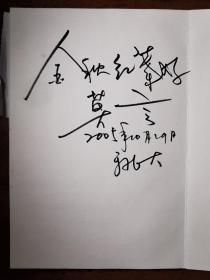 金秋红叶好
莫言
2005年10月29日
于北大